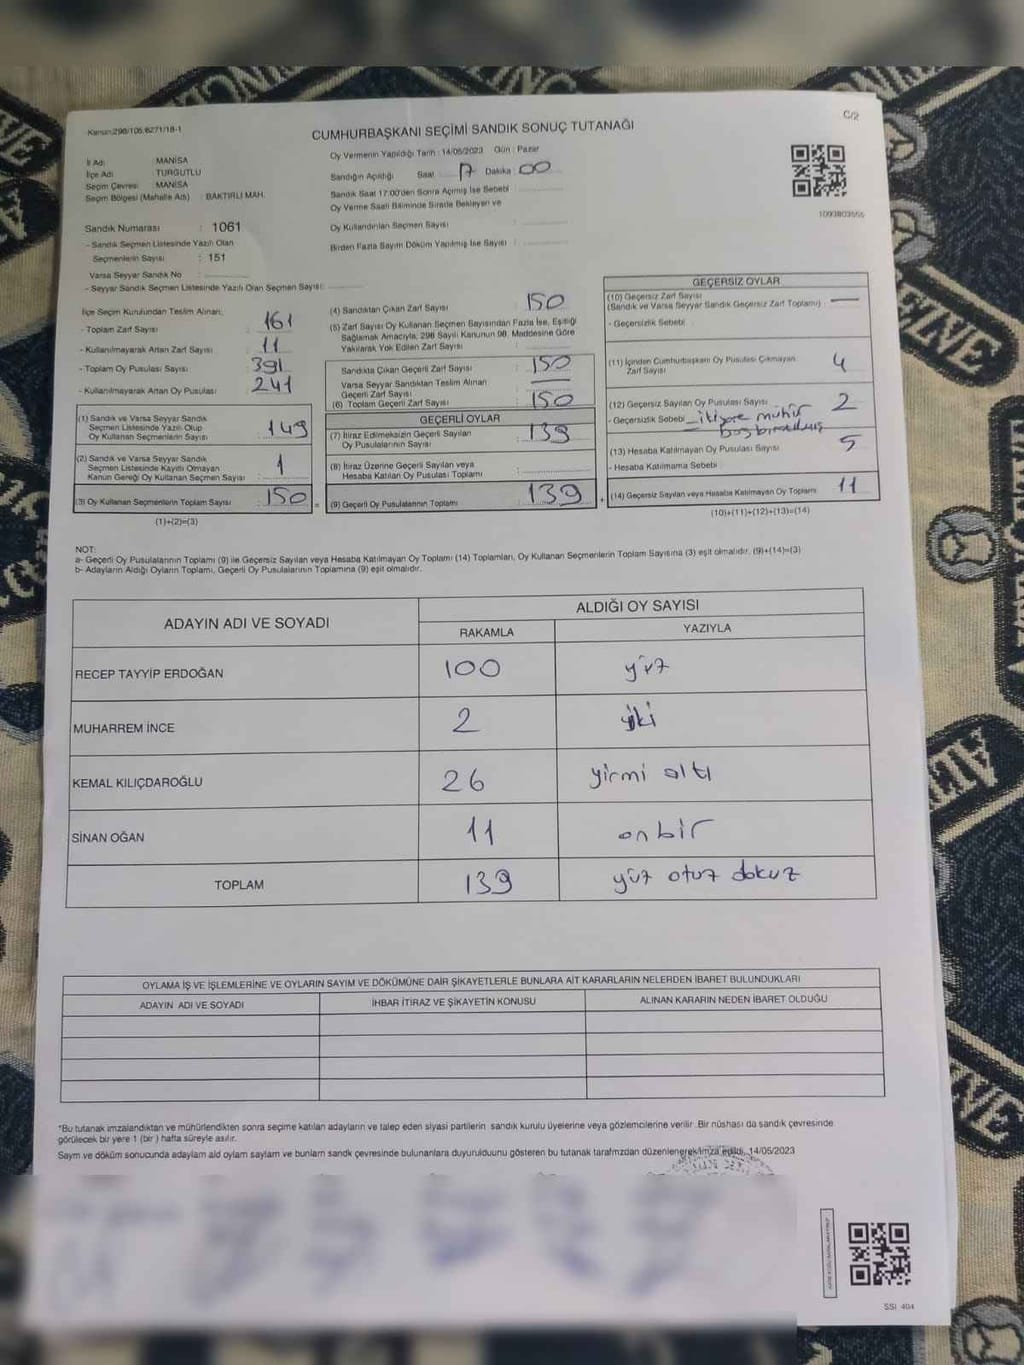 Kanun:298/105,6271/18-1
C/2
CUMHURBAŞKANI SEÇİMİ SANDIK SONUÇ TUTANAĞI
İl Adı MANİSA
İlçe Adı TURGUTLU
Seçim Çevresi MANİSA
Seçim Bölgesi (Mahalle Adı) : BAKTIRLI MAH.
Oy Vermenin Yapıldığı Tarih : 14/05/2023 Gün : Pazar
Sandığın Açıldığı Saat 17 Dakika : 00
Sandık Saat 17:00'den Sonra Açılmış İse Sebebi
Oy Verme Saati Bitiminde Sırada Bekleyen ve
Oy Kullandırılan Seçmen Sayısı :
Birden Fazla Sayım Döküm Yapılmış İse Sayısı :
1093803555
Sandık Numarası : 1061
- Sandık Seçmen Listesinde Yazılı Olan
Seçmenlerin Sayısı : 151
Varsa Seyyar Sandık No :
- Seyyar Sandık Seçmen Listesinde Yazılı Olan Seçmen Sayısı:
İlçe Seçim Kurulundan Teslim Alınan;
- Toplam Zarf Sayısı : 161
- Kullanılmayarak Artan Zarf Sayısı : 11
- Toplam Oy Pusulası Sayısı : 391
- Kullanılmayarak Artan Oy Pusulası : 241
(1) Sandık ve Varsa Seyyar Sandık
Seçmen Listesinde Yazılı Olup
Oy Kullanan Seçmenlerin Sayısı : 149
(2) Sandık ve Varsa Seyyar Sandık
Seçmen Listesinde Kayıtlı Olmayan
Kanun Gereği Oy Kullanan Seçmen Sayısı : 1
(3) Oy Kullanan Seçmenlerin Toplam Sayısı : 150
(1)+(2)=(3)
(4) Sandıktan Çıkan Zarf Sayısı : 150
(5) Zarf Sayısı Oy Kullanan Seçmen Sayısından Fazla İse, Eşitliği
Sağlamak Amacıyla, 298 Sayılı Kanunun 98. Maddesine Göre
Yakılarak Yok Edilen Zarf Sayısı :
Sandıkta Çıkan Geçerli Zarf Sayısı : 150
Varsa Seyyar Sandıktan Teslim Alınan
Geçerli Zarf Sayısı :
(6) Toplam Geçerli Zarf Sayısı : 150
GEÇERLİ OYLAR
(7) İtiraz Edilmeksizin Geçerli Sayılan
Oy Pusulalarının Sayısı : 139
(8) İtiraz Üzerine Geçerli Sayılan veya
Hesaba Katılan Oy Pusulası Toplamı :
(9) Geçerli Oy Pusulalarının Toplamı : 139
GEÇERSİZ OYLAR
(10) Geçersiz Zarf Sayısı
(Sandık ve Varsa Seyyar Sandık Geçersiz Zarf Toplamı) :
- Geçersizlik Sebebi :
(11) İçinden Cumhurbaşkanı Oy Pusulası Çıkmayan
Zarf Sayısı : 4
(12) Geçersiz Sayılan Oy Pusulası Sayısı : 2
- Geçersizlik Sebebi - iki yere mühür
- boş bırakılmış
(13) Hesaba Katılmayan Oy Pusulası Sayısı : 5
- Hesaba Katılmama Sebebi :
(14) Geçersiz Sayılan veya Hesaba Katılmayan Oy Toplamı : 11
(10)+(11)+(12)+(13)=(14)
NOT:
a- Geçerli Oy Pusulalarının Toplamı (9) ile Geçersiz Sayılan veya Hesaba Katılmayan Oy Toplamı (14) Toplamları, Oy Kullanan Seçmenlerin Toplam Sayısına (3) eşit olmalıdır. (9)+(14)=(3)
b- Adayların Aldığı Oyların Toplamı, Geçerli Oy Pusulalarının Toplamına (9) eşit olmalıdır.
ADAYIN ADI VE SOYADI
ALDIĞI OY SAYISI
RAKAMLA YAZIYLA
RECEP TAYYİP ERDOĞAN 100 yüz
MUHARREM İNCE 2 iki
KEMAL KILIÇDAROĞLU 26 yirmi altı
SİNAN OĞAN 11 on bir
TOPLAM 139 yüz otuz dokuz
OYLAMA İŞ VE İŞLEMLERİNE VE OYLARIN SAYIM VE DÖKÜMÜNE DAİR ŞİKAYETLERLE BUNLARA AİT KARARLARIN NELERDEN İBARET BULUNDUKLARI
ADAYIN ADI VE SOYADI İHBAR İTİRAZ VE ŞİKAYETİN KONUSU ALINAN KARARIN NEDEN İBARET OLDUĞU
*Bu tutanak imzalandıktan ve mühürlendikten sonra seçime katılan adayların ve talep eden siyasi partilerin sandık kurulu üyelerine veya gözlemcilerine verilir .Bir nüshası da sandık çevresinde
görülecek bir yere 1 (bir ) hafta süreyle asılır.
Sayım ve döküm sonucunda adayların aldı oyların sayların ve bunların sandık çevresinde bulunanlara duyurulduunu gösteren bu tutanak tarafmzdan düzenlenerek imza edildi. 14/05/2023
SSI 404